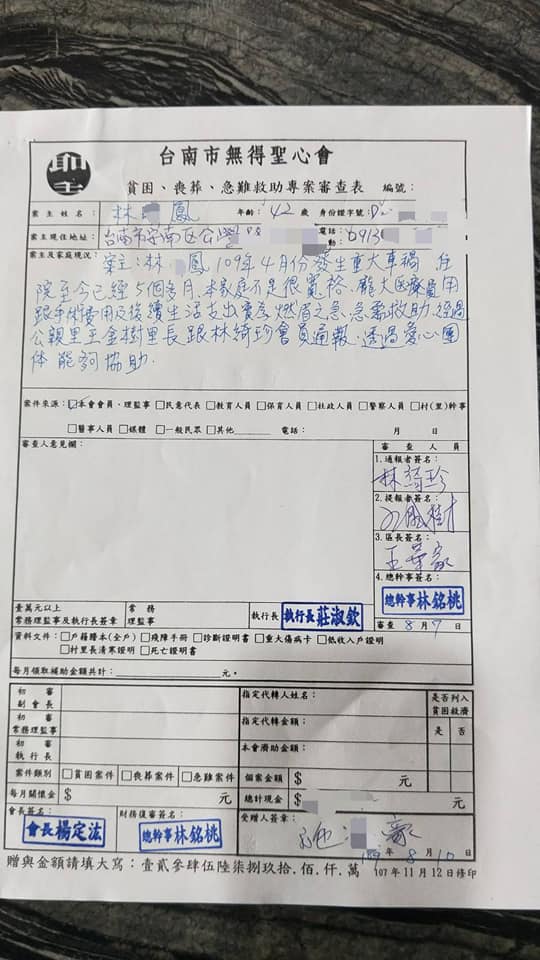 台南市無得聖心會
貧困、喪葬、急難救助專案審查表 編號:
案主姓名: 林 鳳 年齡: 42 歲 身份證字號: D
案主現住地址: 台南市安南區公學 電話: 動: 0913
案主及家庭現況:
案主:林 鳳 109年4月份發生重大車禍 住
院至今已經5個多月.本家庭不是很寬裕.龐大医療費用
跟手術費用及後續生活支出實為燃眉之急.急需救助.經過
公親里王金樹里長跟林綺珍會員通報.透過愛心團
体能夠協助.
案件來源: ☑本會會員、理監事 □民意代表 □教育人員 □保育人員 □社政人員 □警察人員 □村(里)幹事
□醫事人員 □媒體 □一般民眾 □其他 電話: 月 日
審查人意見欄:
審 查 人 員
1.通報者簽名:
林綺珍
2.提報者簽名:
3.區長簽名:
4.總幹事簽名:
總幹事林銘桃
審查 8 月 9 日
壹萬元以上
常務理監事及執行長簽章
常務
理監事
執行長 執行長莊淑欽
資料文件: □戶籍謄本(全戶) □殘障手冊 □診斷證明書 □重大傷病卡 □低收入戶證明
□村里長清寒證明 □死亡證明書
每月領取補助金額共計: 元。
初審
副會長
初審
常務理監事
初審
執行長
指定代轉人姓名:
指定代轉金額:
本會濟助金額:
是否列入
貧困救濟
是 否
案件類別 □貧困案件 □喪葬案件 □急難案件 個案金額 $ 元
每月關懷金 $ 元 總計現金 $ 元
會長簽名: 會長楊定法
財務復審簽名: 總幹事林銘桃
受贈人簽章:
109 年 8 月 10 日
贈與金額請填大寫:壹貳參肆伍陸柒捌玖拾.佰.仟.萬 107年11月12日修印